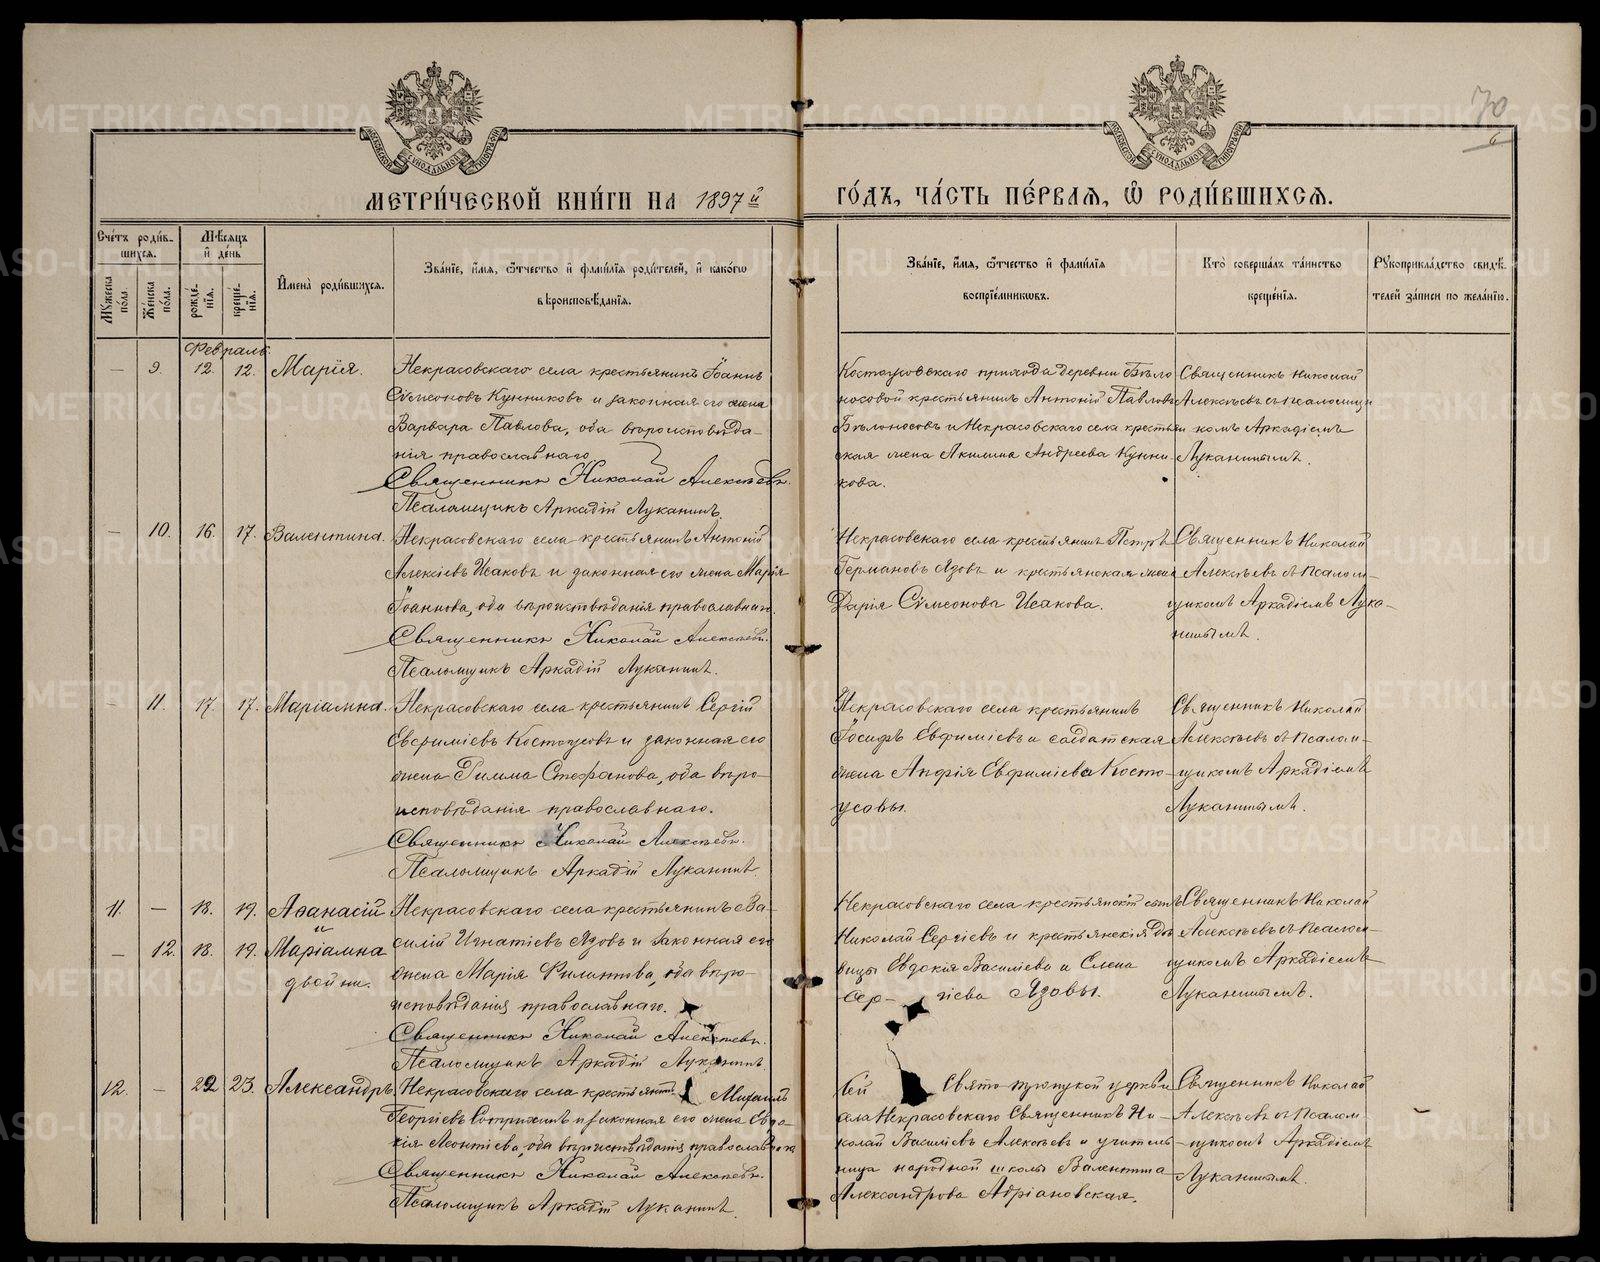 70
6
МОСКОВСКОЙ СѴНОДАЛЬНОЙ ТИПОГРАФІИ
МОСКОВСКОЙ СѴНОДАЛЬНОЙ ТИПОГРАФІИ
МЕТРИ́ЧЕСКОЙ КНИ́ГИ НА 1897й
ГО́ДЪ, ЧА́СТЬ ПЕ́РВАЯ, Ѽ РОДИ́ВШИХСЯ.
Сче́тъ роди́в-
шихся.
Му́жеска по́ла.
Же́нска по́ла.
Мѣ́сяцъ
и҆ де́нь
рожде́-
нїя.
креще́-
нїя.
И҆мена̀ роди́вшихся.
Зва́нїе, и҆́мя, ѻ҆́тчество и҆ фами́лїя роди́телей, и҆ како́гѡ
вѣроисповѣ́данїя.
Зва́нїе, и҆́мя, ѻ҆́тчество и҆ фами́лїя
воспрїе́мникѡвъ.
Кто̀ соверша́лъ та́инство
креще́нїя.
Рꙋкоприкла́дство свидѣ́-
телей за́писи по жела́нїю.
Февраль.
— 9. 12. 12. Марія.
Некрасовскаго села крестьянинъ Іоаннъ
Сѵмеоновъ Кунниковъ и законная его жена
Варвара Павлова, оба вѣроисповѣда-
нія православнаго.
Священникъ Николай Алексѣевъ.
Псаломщикъ Аркадій Луканинъ.
Костоусовскаго прихода деревни Бѣло
носовой крестьянинъ Антоній Павловъ
Бѣлоносовъ и Некрасовскаго села крестьян
ская жена Акилина Андреева Кунни-
кова.
Священникъ Николай
Алексѣевъ съ псаломщи
комъ Аркадіемъ
Луканинымъ.
— 10. 16. 17. Валентина.
Некрасовскаго села крестьянинъ Антоній
Алексіевъ Исаковъ и законная его жена Марія
Іоаннова, оба вѣроисповѣданія православнаго.
Священникъ Николай Алексѣевъ.
Псаломщикъ Аркадій Луканинъ.
Некрасовскаго села крестьянинъ Петръ
Германовъ Язовъ и крестьянская жена
Дарія Сѵмеонова Исакова.
Священникъ Николай
Алексѣевъ съ псалом-
щикомъ Аркадіемъ Лука-
нинымъ.
— 11. 17. 17. Маріамна.
Некрасовскаго села крестьянинъ Сергій
Евфиміевъ Костоусовъ и законная его
жена Римма Стефанова, оба вѣро-
исповѣданія православнаго.
Священникъ Николай Алексѣевъ.
Псаломщикъ Аркадій Луканинъ.
Некрасовскаго села крестьянинъ
Іосифъ Евфиміевъ и солдатская
жена Анфія Евфиміева Косто-
усовы.
Священникъ Николай
Алексѣевъ съ псалом-
щикомъ Аркадіемъ
Луканинымъ.
11. — 18. 19. Аѳанасій
и
— 12. 18. 19. Маріамна
двойни.
Некрасовскаго села крестьянинъ Ва-
силій Игнатіевъ Язовъ и законная его
жена Марія Филиппова, оба вѣро-
исповѣданія православнаго.
Священникъ Николай Алексѣевъ.
Псаломщикъ Аркадій Луканинъ.
Некрасовскаго села крестьянскій сынъ
Николай Сергіевъ и крестьянскія дѣ
вицы Евдокія Василіева и Елена
Сер- гіева Язовы.
Священникъ Николай
Алексѣевъ съ псалом-
щикомъ Аркадіемъ
Луканинымъ.
12. — 22 23. Александръ
Некрасовскаго села крестьянинъ Михаилъ
Георгіевъ и законная его жена Евдо-
кія Леонтіева, оба вѣроисповѣданія православнаго
Священникъ Николай Алексѣевъ.
Псаломщикъ Аркадій Луканинъ.
Свято-троицкой церкви
села Некрасовскаго Священникъ Ни-
колай Василіевъ Алексѣевъ и учитель-
ница народной школы Валентина
Александрова Адріановская.
Священникъ Николай
Алексѣевъ съ псалом-
щикомъ Аркадіемъ
Луканинымъ.
METRIKI.GASO-URAL.RU